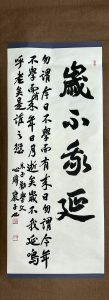 歲不我延
勿謂今日不學而有來日勿謂今年
不學而有來年日月逝矣歲不我延嗚
呼老矣是誰之愆
朱子勸學文